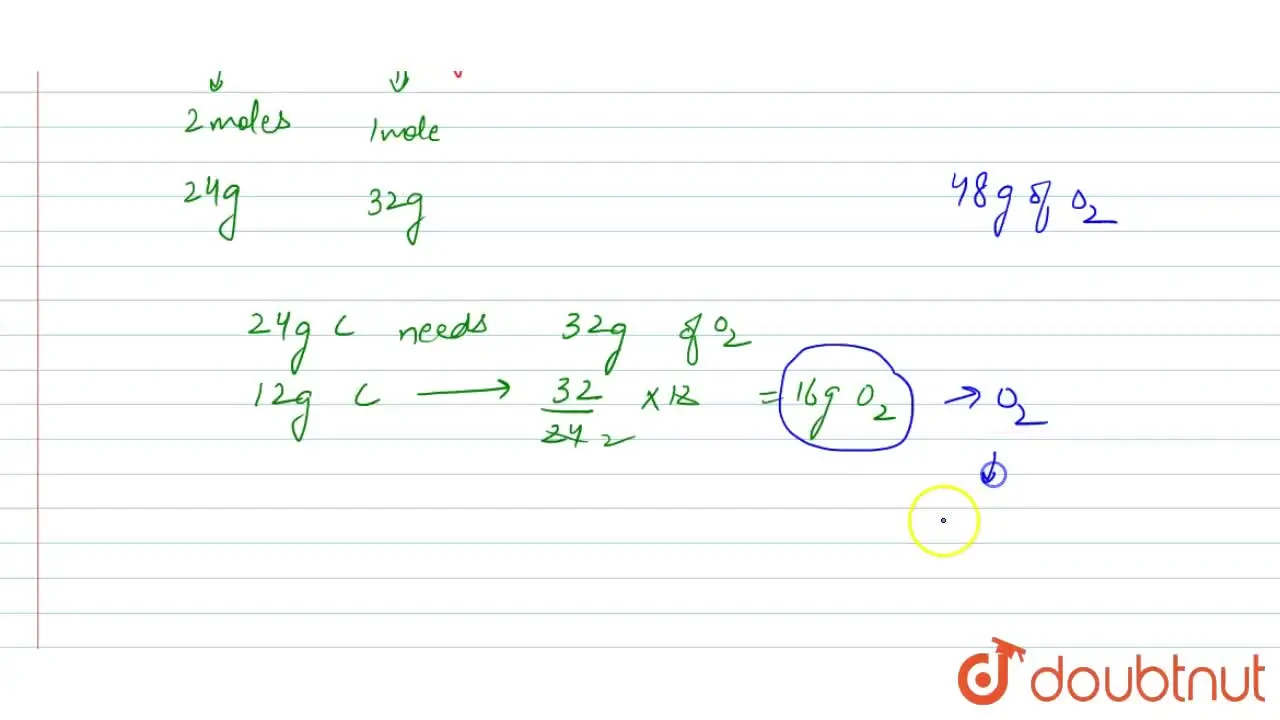 2 moles 1 mole
24g 32g 48g of O2
24g C needs 32g of O2
12g C → 32/24 2 × 12 = 16g O2 → O2
doubtnut